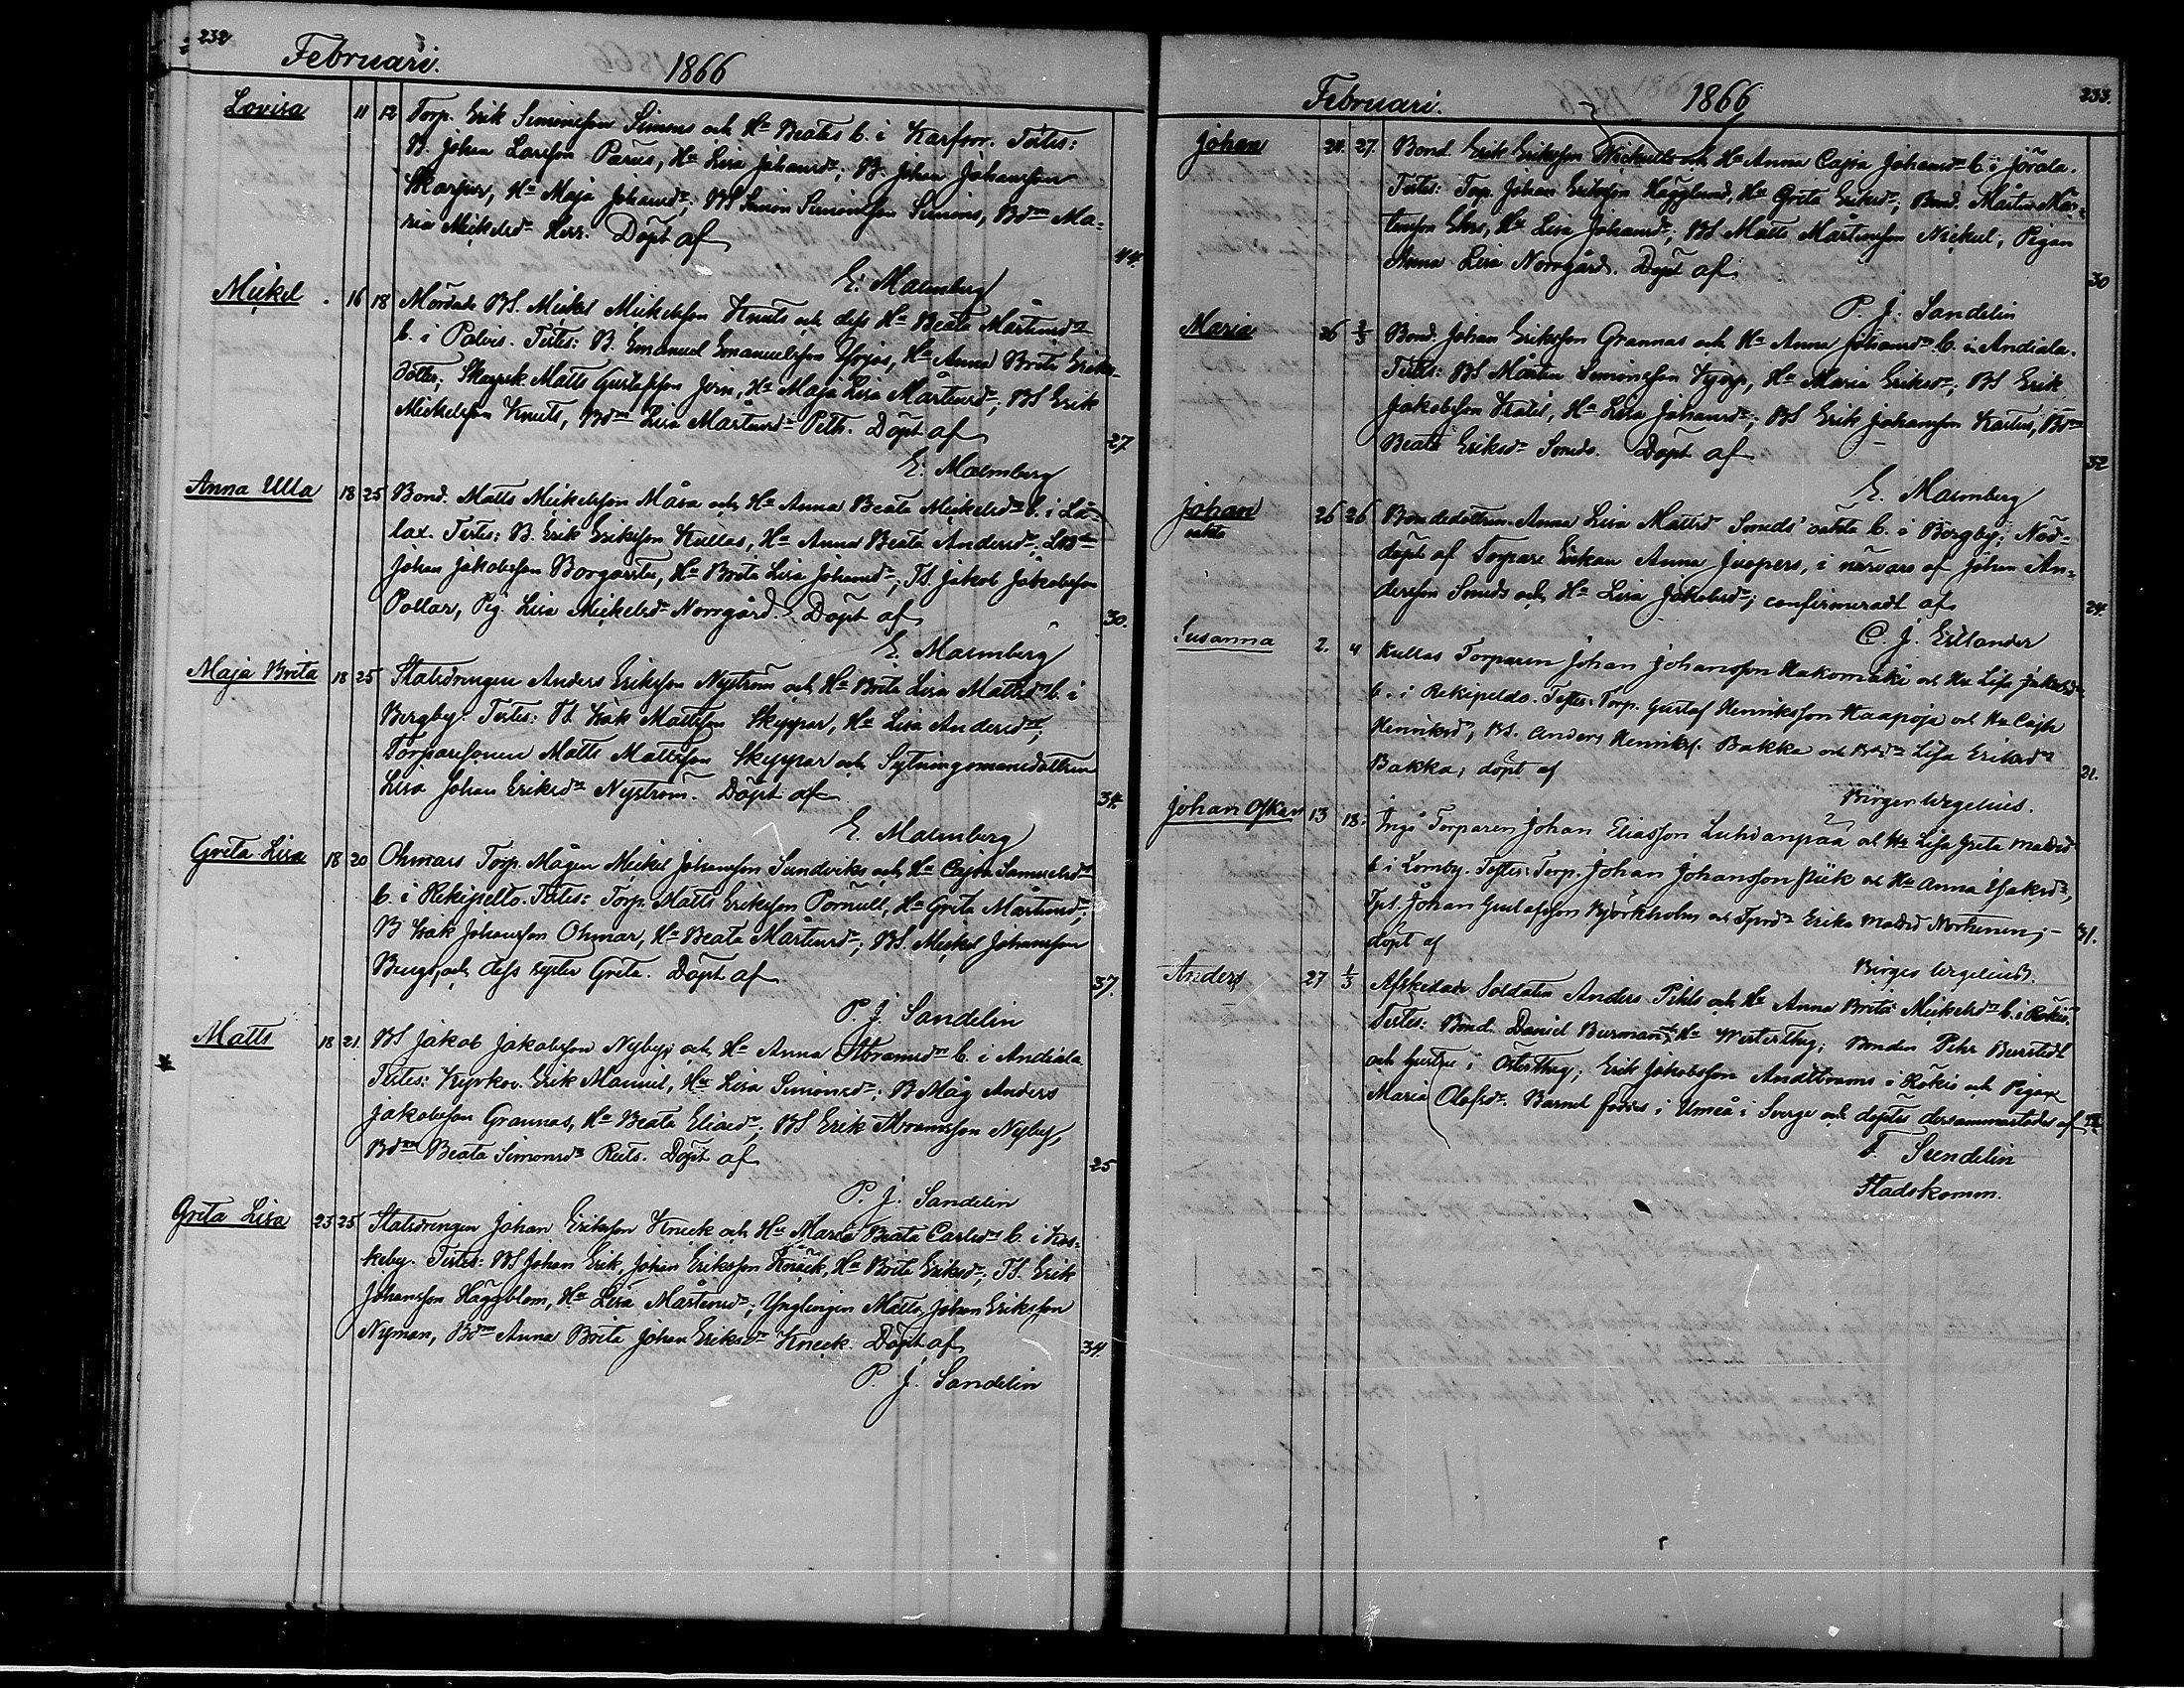 232
Februari. 1866
Lovisa 11 12 Torp. Erik Simonsson Simons och Hu Beata b. i Karfsor. Testes:
B. Johan Larsson Parus, Hu Lisa Johansdr; B. Johan Johansson
Skarpar, Hu Maja Johansdr; BS Simon Simonsson Simons, Bdn Ma-
ria Mickelsdr Herr. Döpt af 44.
E. Malmberg
Mickel 16 18 Mördade BS. Mickel Mickelsson Knuts och dess Hu Beata Mårtensdr
b. i Palvis. Testes: B. Emanuel Emanuelsson, Hu Anna Brita Eriks-
dotter; Matts Gustafsson, Hu Maja Lisa Mårtensdr; BS Erik
Mickelsson Knuts, Bdn Lisa Mårtensdr Peth. Döpt af 27
E. Malmberg
Anna Ulla 18 25 Bond. Matts Mickelsson Måsa och Hu Anna Beata Mickelsdr b. i Lå-
lax. Testes: B. Erik Eriksson Kullas, Hu Anna Beata Andersdr;
Johan Jakobsson Borgarsta, Hu Brita Lisa Johansdr; TS. Jakob Jakobsson
Pollar, Pig. Lisa Mickelsdr Norrgård. Döpt af 30.
E. Malmberg
Maja Brita 18 25 Statsdrengen Anders Eriksson Nyström och Hu Brita Lisa Mattsdr b. i
Bergby. Testes: TS. Isak Mattsson Skeppar, Hu Lisa Andersdr;
Torparesonen Matts Mattsson Skeppar och Sytningsmansdottren
Lisa Johan Eriksdr Nyström. Döpt af 34.
E. Malmberg
Greta Lisa 18 20 Ohmars Torp. Mågen Mickel Johansson Sundviks och Hu Cajsa Samuelsdr
b. i Rekipelto. Testes: Torp. Matts Eriksson Pörnull, Hu Greta Mårtensdr;
B Isak Johansson Ohmar, Hu Beata Mårtensdr; BS. Mickel Johansson
Bengs, och dess syster Greta. Döpt af 37.
P. J. Sandelin
Matts 18 21. BS Jakob Jakobsson Nyby och Hu Anna Abramsdr b. i Andiala
Testes: Kyrkov. Erik Manuel, Hu Lisa Simonsdr; B. Måg Anders
Jakobsson Grannas, Hu Beata Eliasdr; BS Erik Abramsson Nyby,
Bdn Beata Simonsdr Reets. Döpt af 25
P. J. Sandelin
Greta Lisa 23 25 Statsdrengen Johan Eriksson Kneck och Hu Maria Beata Carlsdr b. i Kos-
keby. Testes: BS Johan Erik Johan Eriksson Kneck, Hu Brita Eriksdr; TS. Erik
Johansson Häggblom, Hu Lisa Mårtensdr; Ynglingen Matts Johan Eriksson
Nyman, Bdn Anna Brita Johan Eriksdr Kneck. Döpt af 34.
P. J. Sandelin
233.
Februari. 1866
Johan 24. 27. Bond. Erik Eriksson Nickulls och Hu Anna Cajsa Johansdr b. i Jörala.
Testes: Torp. Johan Eriksson Hägglund, Hu Greta Eriksdr; Bond. Mårten Mår-
tensson Ehrs, Hu Lisa Johansdr; BS Matts Mårtensson Nickul, Pigan
Anna Lisa Norrgård. Döpt af 30
P. J. Sandelin
Maria 26 2/3 Bond. Johan Eriksson Grannas och Hu Anna Johansdr b. i Andiala.
Testes: BS Mårten Simonsson, Hu Maria Eriksdr; BS Erik
Jakobsson, Hu Lisa Johansdr; BS Erik Johansson Kartus, Bdn
Beata Eriksdr Smeds. Döpt af 32
E. Malmberg
Johan 26 26 Bondedottren Anna Lisa Mattsd Smeds' oäkta b. i Bergby; Nöd-
oäkta döpt af Torpare Enkan Anna Juspers, i närvaro af Johan An-
dersson Smeds och Hu Lisa Jakobsdr; confirmeradt af 24.
C. J. Estlander
Susanna 2. 4 Kullas Torparen Johan Johansson Hakomäki och Hu Lisa Jakobsdr
b. i Rekipeldo. Testes: Torp. Gustaf Henriksson Haapoja och Hu Cajsa
Henriksd, BS. Anders Henriks. Bakka och Bdr Lisa Eriksdr
Bakka; döpt af 21.
Birger Wegelius.
Johan Oskar 13 18. Ingo Torparen Johan Eliasson Luhdanpää och Hu Lisa Greta Mattsd
b. i Lomby. Testes: Torp. Johan Johansson Piik och Hu Anna Isaksdr,
TS. Johan Gustafsson Björkholm och Erika Mattsd; 31.
döpt af
Birger Wegelius.
Anders 27 1/3 Afskedade Soldaten Anders Pihls och Hu Anna Brita Mickelsdr b. i Rökiö,
Testes: Bond. Daniel Burman & Hu Westertheg; Bonden Pehr Burstedt
och hustru i Östertheg; Erik Jakobsson Andtbroms i Rökiö och Pigan
Maria Olofsdr. Barnet föddes i Umeå i Sverge och döptes dersammastades af
F. Sundelin
Stadskomm.